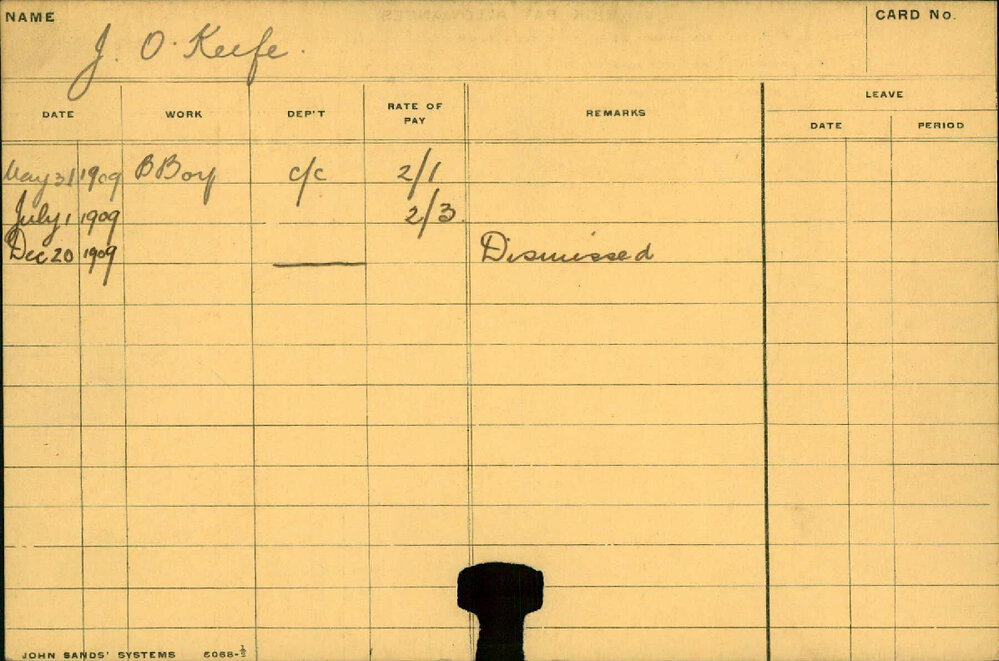 NAME
CARD No.
J. O. Keefe.
DATE WORK DEP'T RATE OF PAY REMARKS LEAVE
DATE PERIOD
May 31 1909 B Boy c/c 2/1
July 1 1909 2/3
Dec 20 1909 Dismissed
JOHN SANDS' SYSTEMS 6068-½